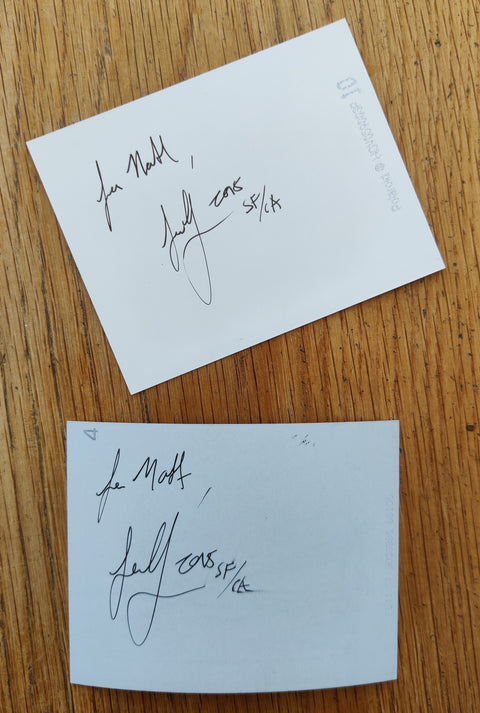 for Matt,
2015
SF/CA
Polaroid ® HCN03N032P
10
4
for Matt,
2015
SF/CA